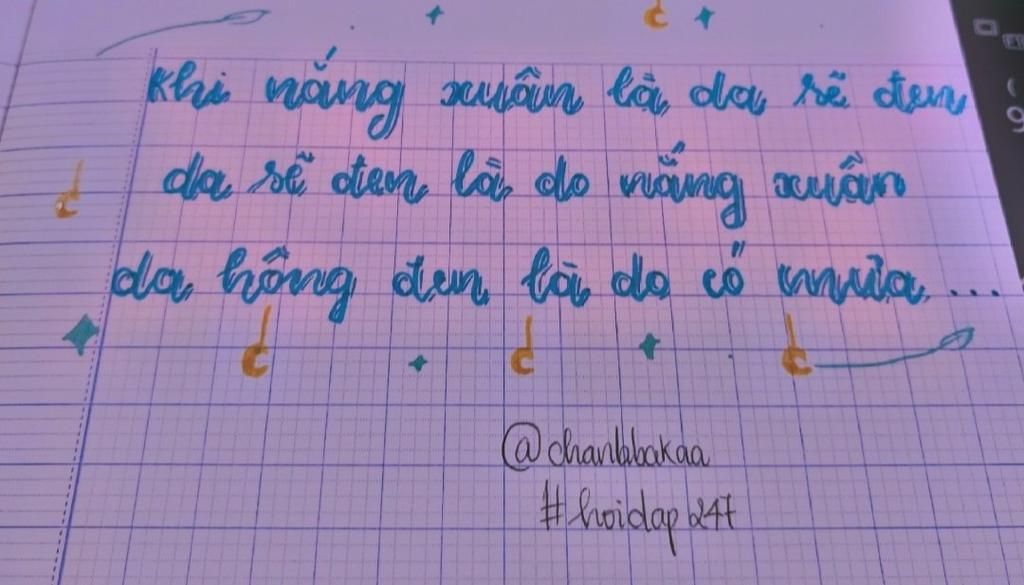 Khi nắng xuân là da sẽ đen
da sẽ đen là do nắng xuân
da hồng đen là do cố mưa...
@chanbbakaa
#hoidap247